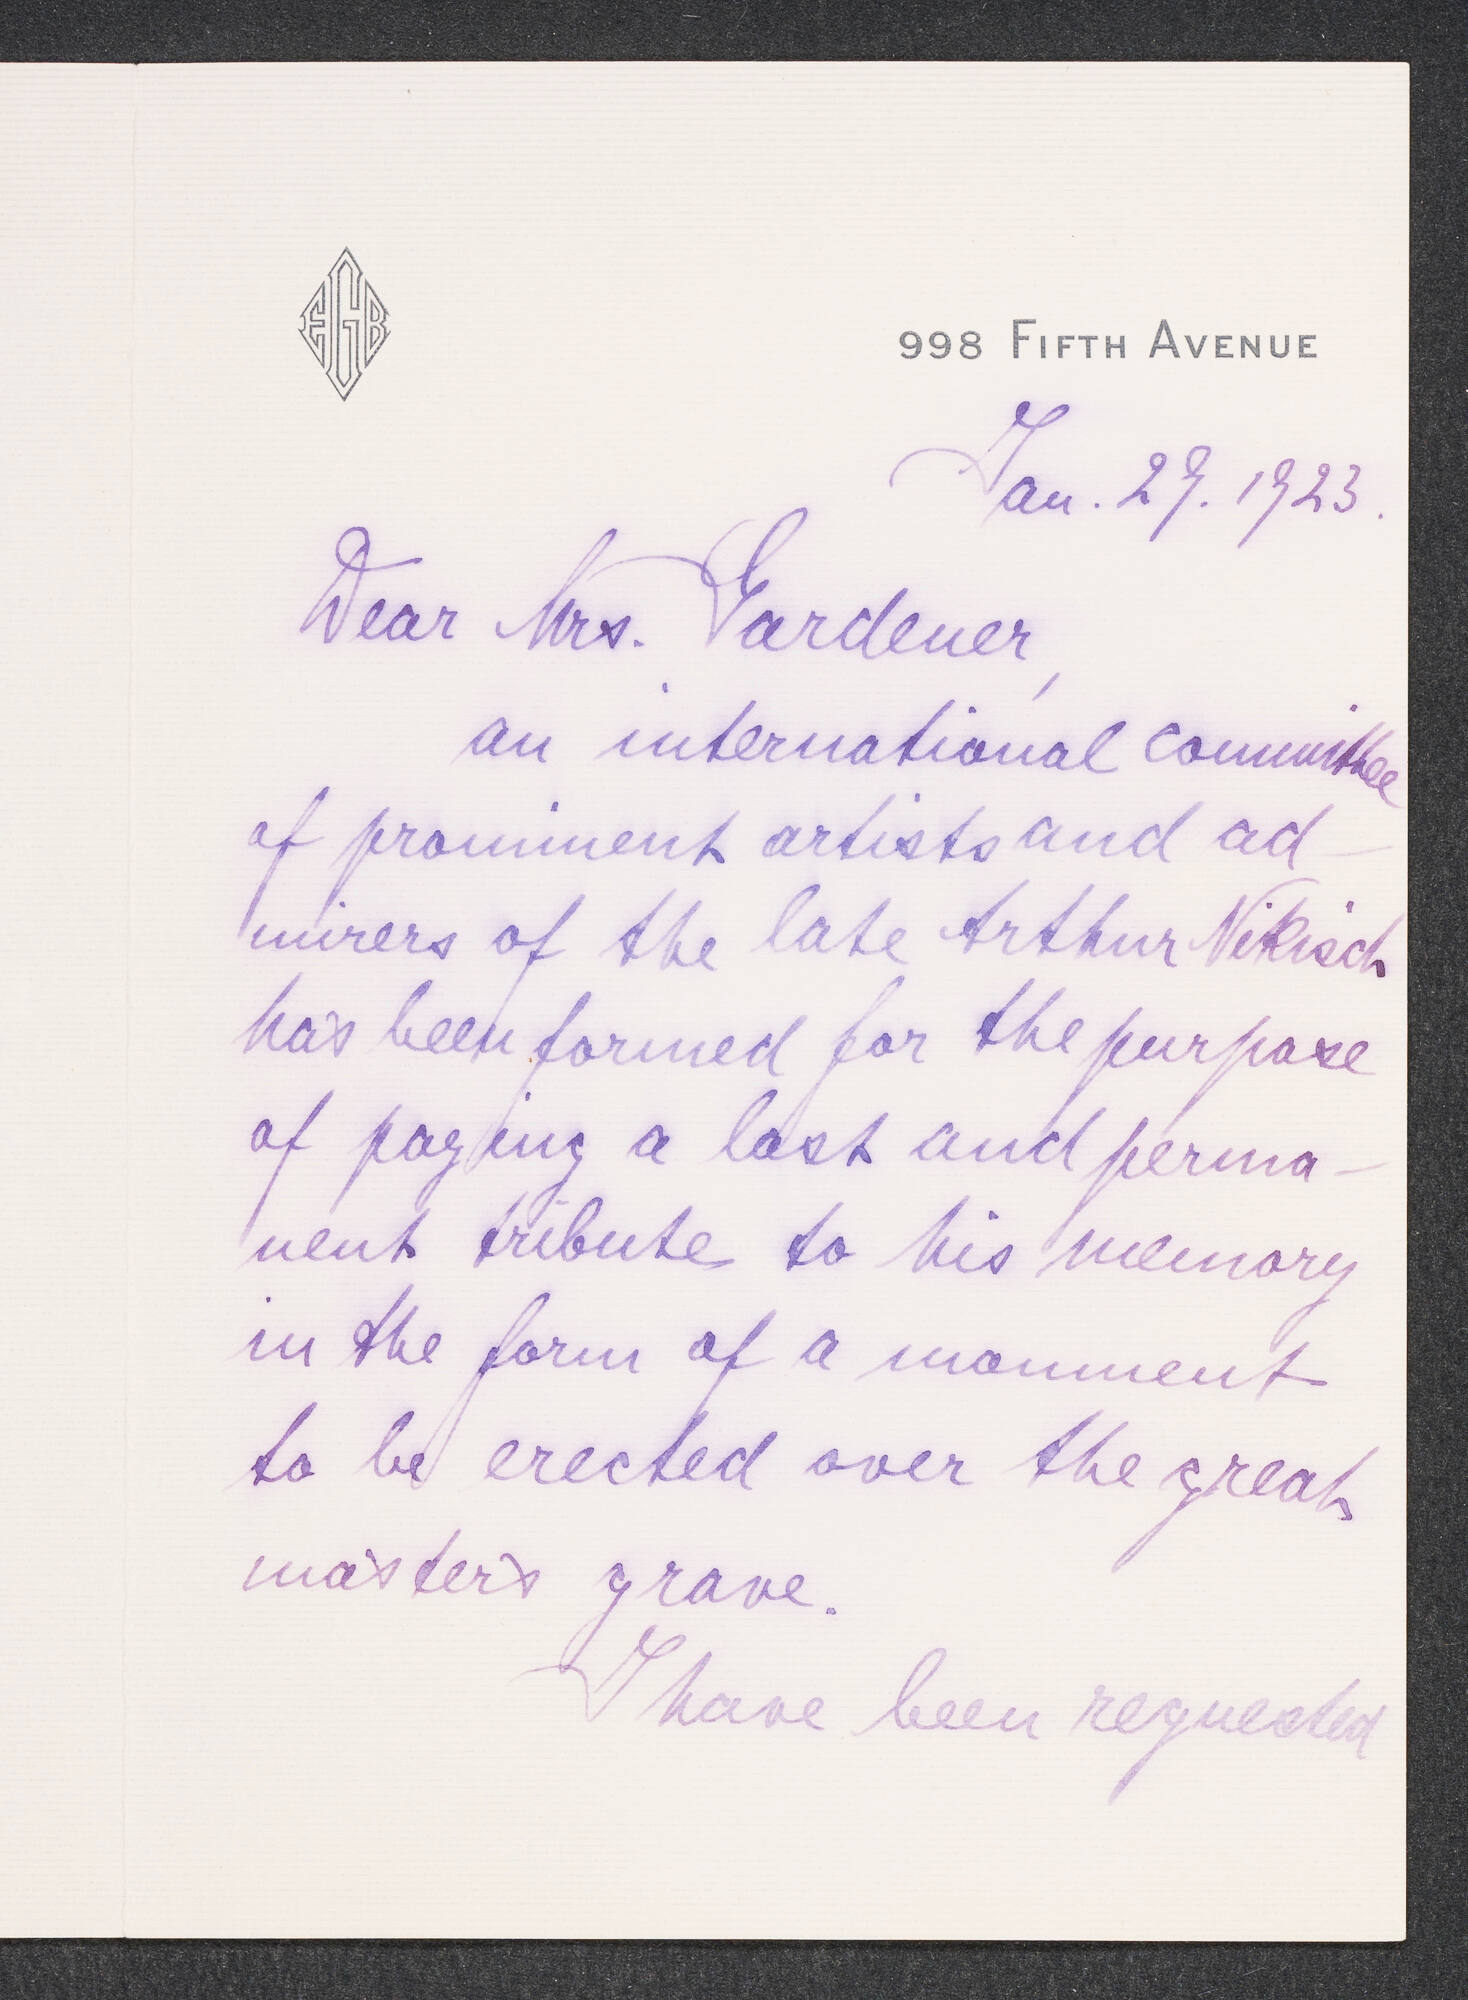 EGB
998 FIFTH AVENUE
Jan. 29. 1923.
Dear Mrs. Gardener,
an international committee
of prominent artists and ad-
mirers of the late Arthur Nikisch
has been formed for the purpose
of paying a last and perma-
nent tribute to his memory
in the form of a monument
to be erected over the great
master's grave.
I have been requested